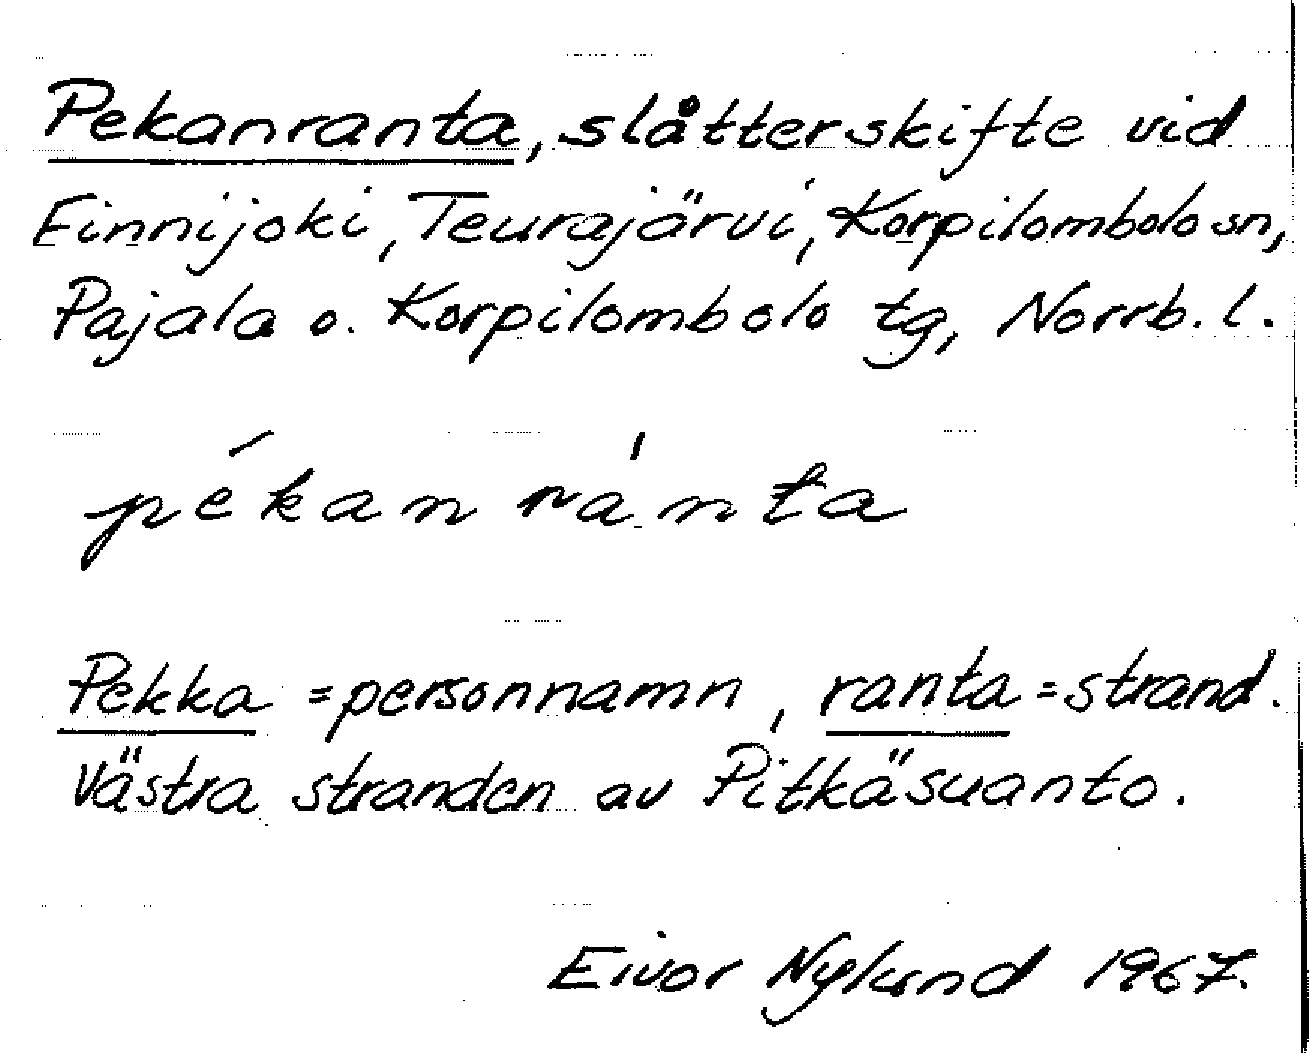 Pekanranta, slåtterskifte vid
Einnijoki, Teurajärvi, Korpilombolo sn,
Pajala o. Korpilombolo tg, Norrb. l.
pékan ránta
Pekka = personnamn, ranta = strand.
Västra stranden av Pitkäsuanto.
Eivor Nylund 1967.